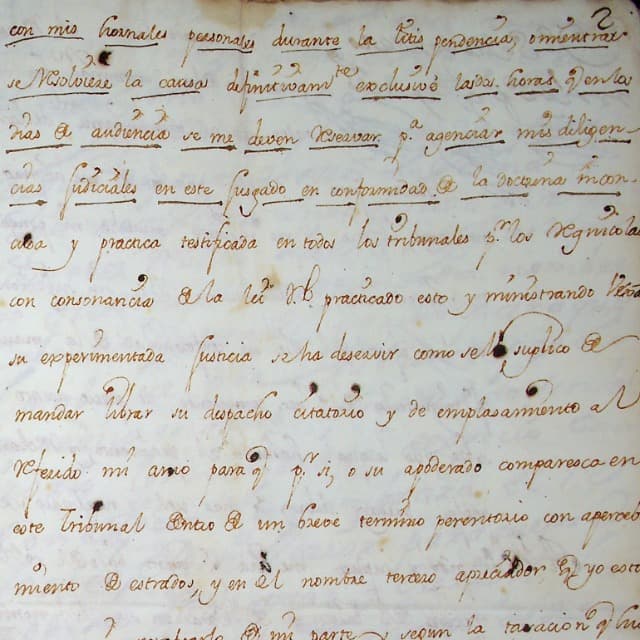 2
con mis jornales personales durante la litis pendencia, o mientras
se Resolviere la causa definitivamte exclusive las dos horas q en los
dias de audiencia se me deven Reservar pa agenciar mis diligen-
cias Judiciales en este Jusgado en conformidad de la doctrina incon-
cusa y practica testificada en todos los tribunales pr los Regnicolas
con consonancia de la ley practicado esto y ministrando
su experimentada Justicia se ha deservir como se lo suplico de
mandar librar su despacho citatorio y de emplasamiento al
Referido mi amo para q pr si, o su apoderado comparesca en
este Tribunal dentro de un breve termino perentorio con apercebi
miento de estrados, y en el nombre tercero apreciador, q yo esto
de mi parte y segun la tasacion q